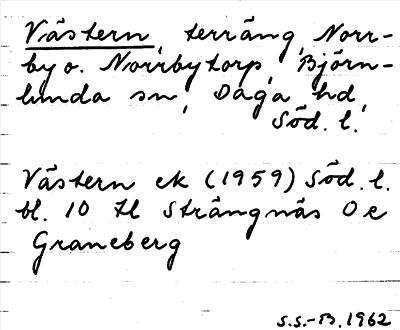 Västern, terräng, Norr-
by o. Norrbytorp, Björn-
lunda sn, Daga hd,
Söd. l.
Västern ek (1959) Söd. l.
bl. 10 tl Strängnäs Oe
Graneberg
S.S.-B. 1962